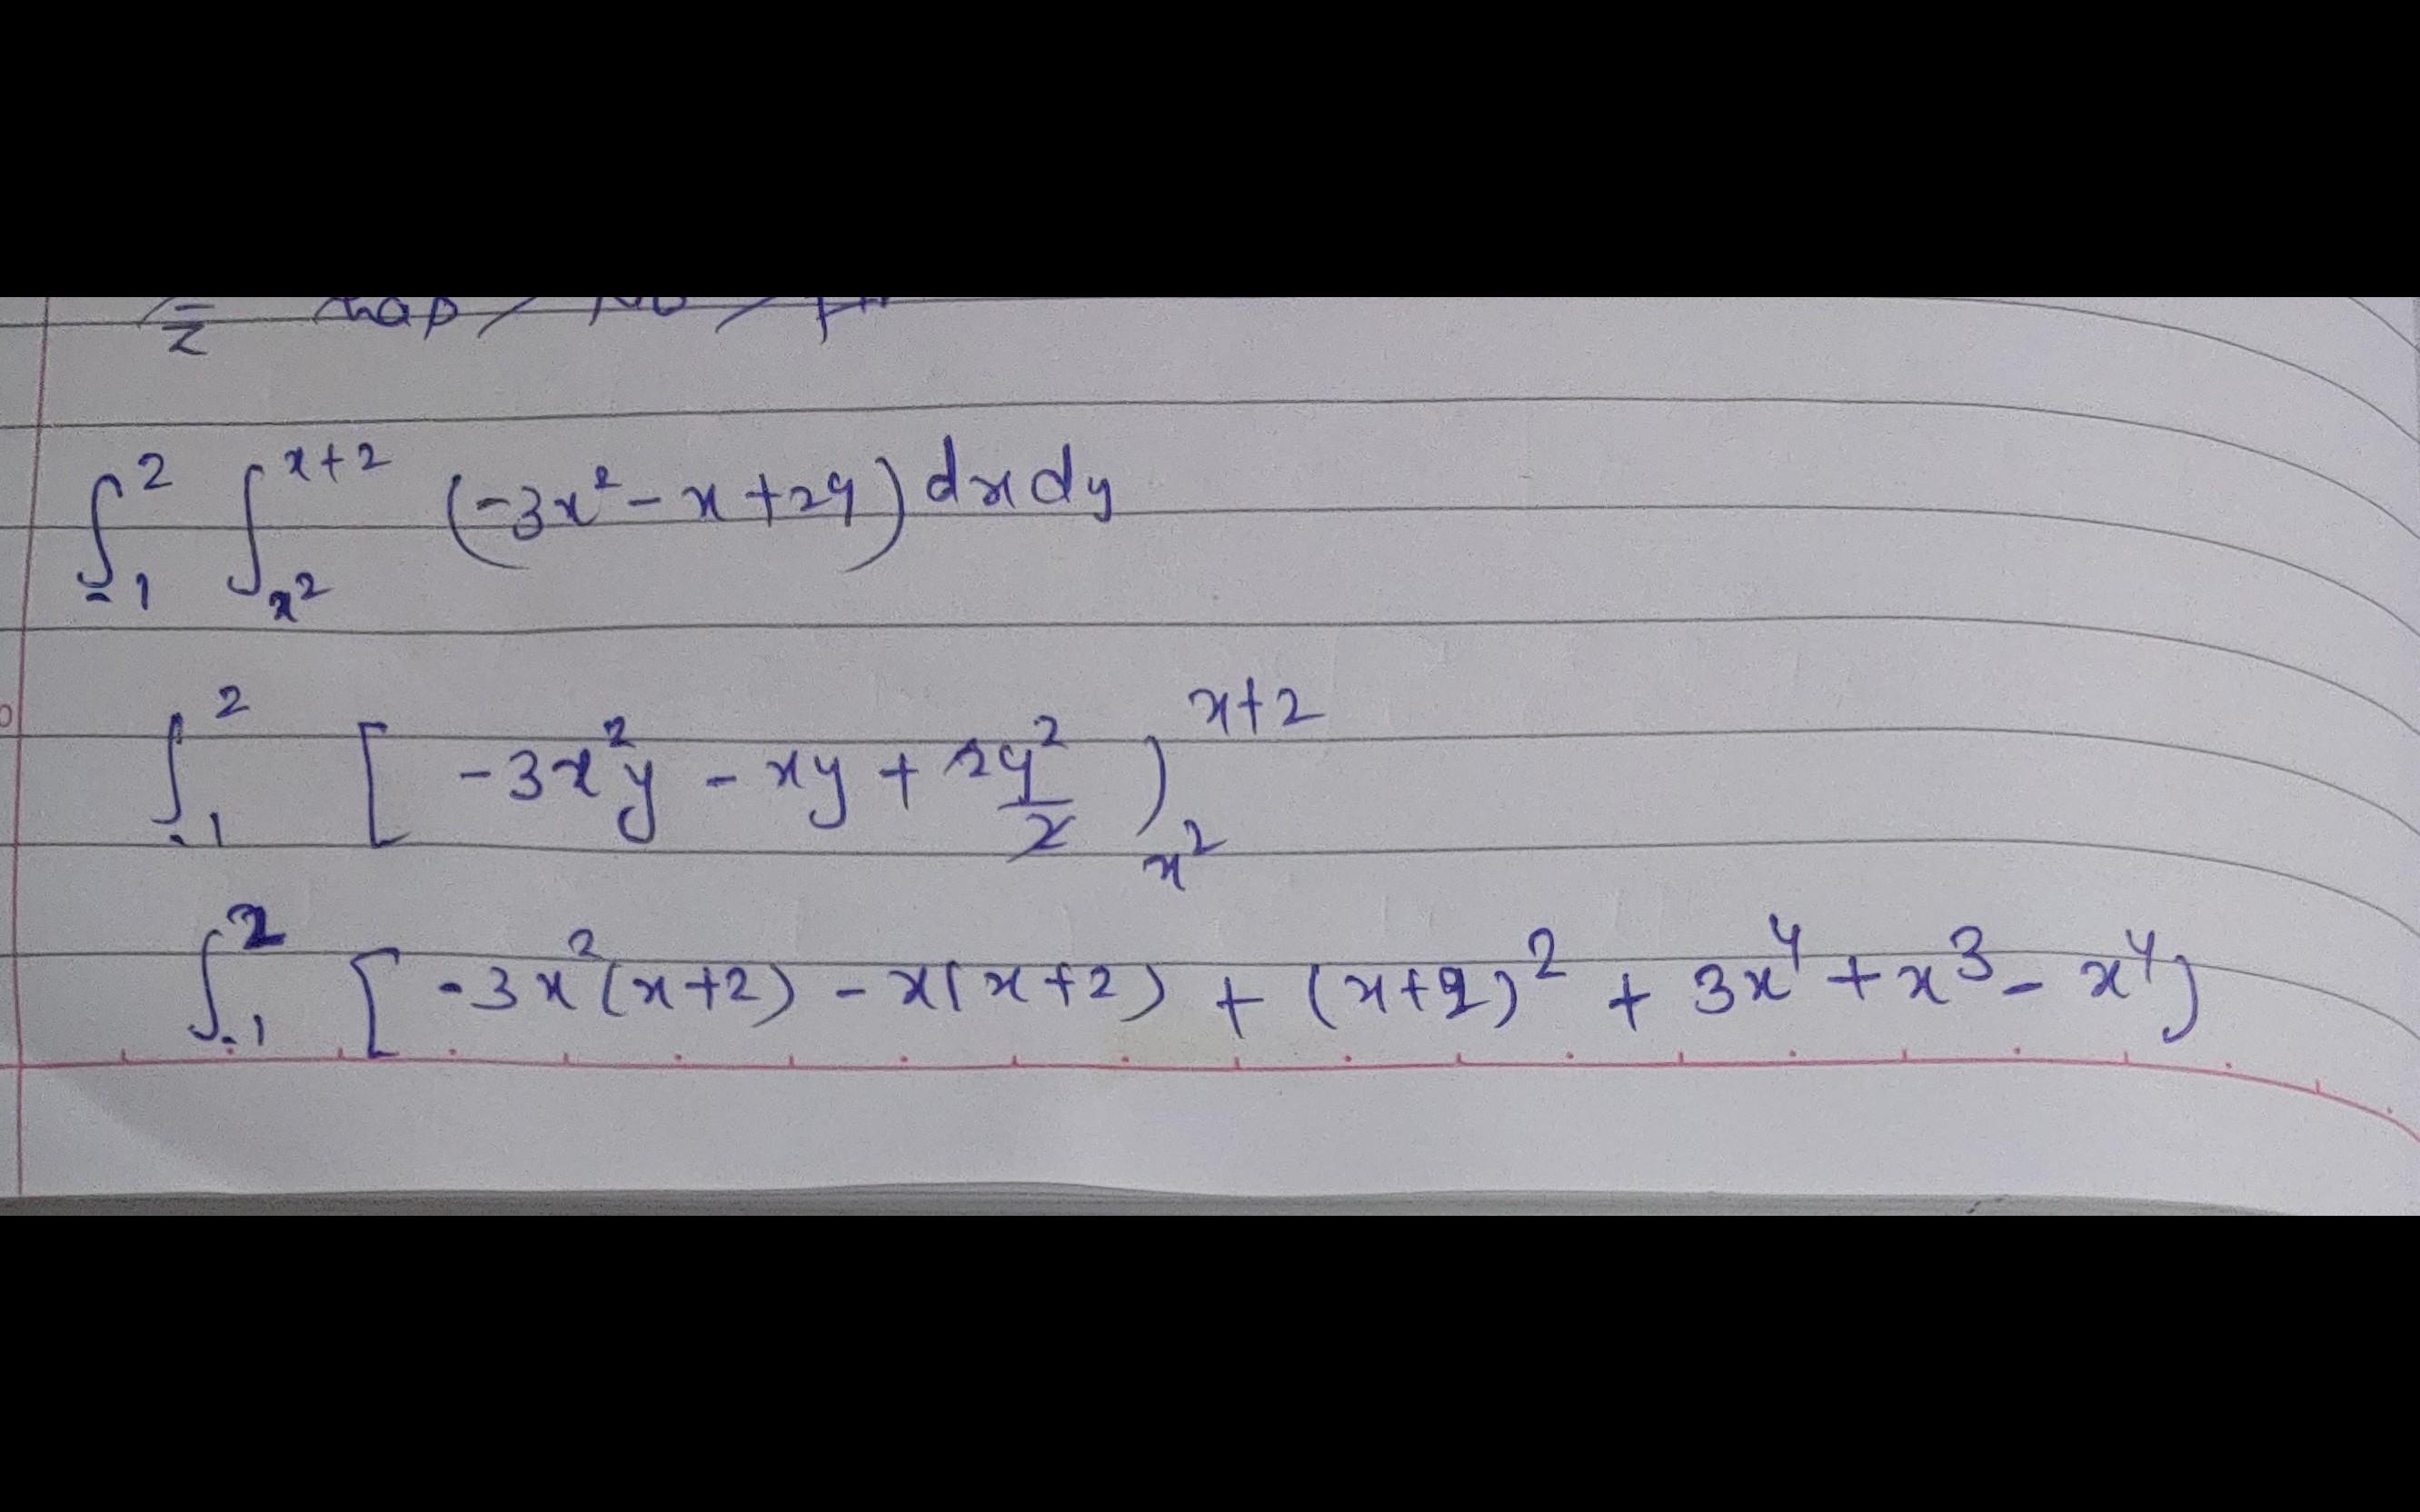 ∫₋₁² ∫ₓ²ˣ⁺² (-3x² - x + 2y) dx dy
∫₋₁² [ -3x²y - xy + 2y²/2 )ₓ²ˣ⁺²
∫₋₁² [ -3x²(x+2) - x(x+2) + (x+2)² + 3x⁴ + x³ - x⁴ )